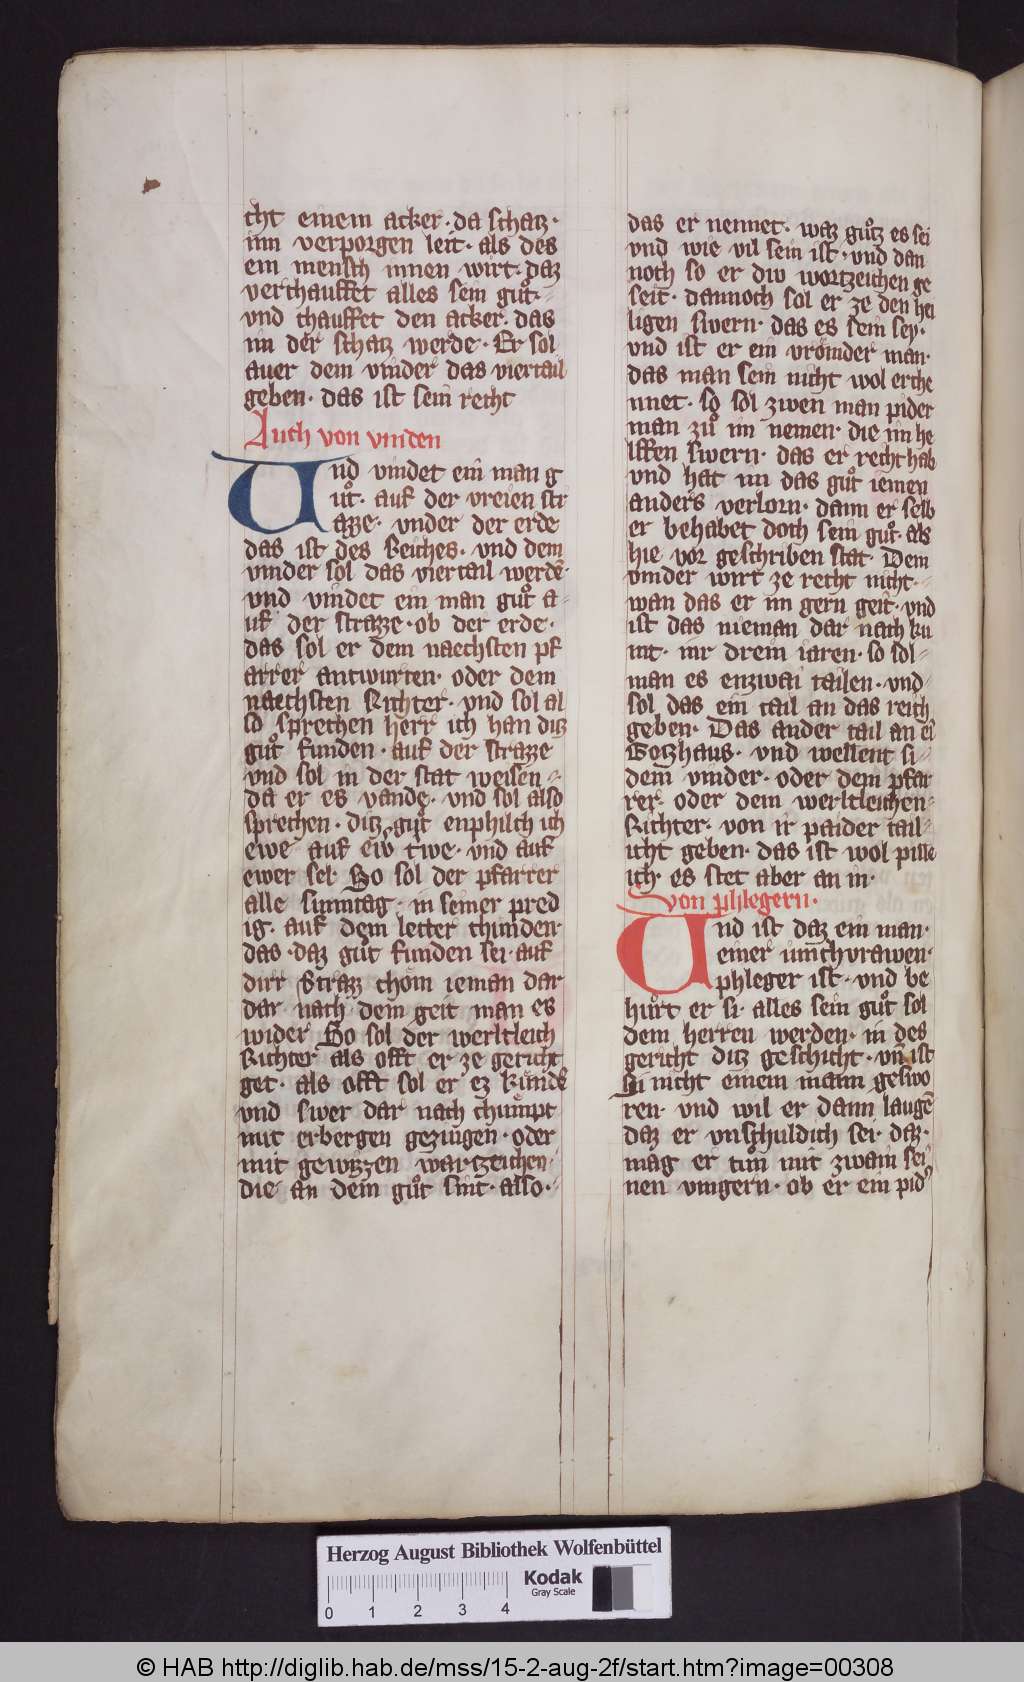 cht einem acker · da schatz ·
inn verporgen leit · als des
ein mensch innen wirt · daz
verchauffet alles sein guͦt ·
vnd chauffet den acker · das
im der schatz werde · Er sol
auer dem vinder das viertail
geben · das ist sein recht
Auch von vinden
Und vindet ein man g
uͦt · auf der vreien str
azze · vnder der erde
das ist des Reiches · vnd dem
vinder sol das viertail werdē ·
vnd vindet ein man guͦt a
uf der strazze · ob der erde ·
das sol er dem naechsten pf
arrer antwurten · oder dem
naechsten Richter · vnd sol al
so sprechen herr ich han ditz
guͦt funden · auf der strazze
vnd sol in der stat weisen
da er es vande · vnd sol also
sprechen · ditz guͦt enphilch ich
ewe auf ewͥ trwe · vnd auf
ewer sel · So sol der pfarrer
alle sunntag · in seiner pred
ig · auf dem letter chunden
das · daz guͦt funden sei · auf
dirr Strazz chöm ieman dar
dar nach dem geit man es
wider So sol der werltleich
Richter als offt er ze gericht
get · als offt sol er ez kundē
vnd swer dar nach chumpt
mit erbergen gezeugen · oder
mit gewizzen wartzeichen ·
die an dem guͦt sint · also ·
das er nennet · waz guͦtz es sei
vnd wie vil sein ist · vnd dan
noch so er diw wortzeichen ge
seit · dannoch sol er ze den hei
ligen swern · das es sein sey ·
vnd ist er ein vrömder man ·
das man sein nicht wol erche
nnet · so sol zwen man pider
man zuͦ im nemen · die im he
lffen swern · das er recht hab
vnd hat im das guͦt iemen
anders verlorn · dann er selb
er behabet doch sein guͦt · als
hie vor geschriben stat · Dem
vinder wirt ze recht nicht ·
wan das er im gern geit · vnd
ist das nieman dar nach ku
mt · inr drein iaren · so sol
man es enzwai tailen · vnd
sol das ein tail an das reich
geben · Das ander tail an ei
Gotzhaus · vnd wellent si
dem vinder · oder dem pfar
rer · oder dem werltleichen
Richter · von ir paider tail
icht geben · das ist wol pille
ich · es stet aber an in ·
Von phlegern ·
Und ist daz ein man ·
einer iunchvrawen ·
phleger ist · vnd be
huͦrt er si · alles sein guͦt sol
dem herren werden · in des
gericht ditz geschicht · vn̄ ist
si nicht einem mann geswo
ren · vnd wil er dann laugē
daz er vnschuldich sei · daz ·
mag er tuͦn mit zwain sei
nen vingern · ob er ein pid'
Herzog August Bibliothek Wolfenbüttel
Kodak
Gray Scale
0 1 2 3 4
© HAB http://diglib.hab.de/mss/15-2-aug-2f/start.htm?image=00308